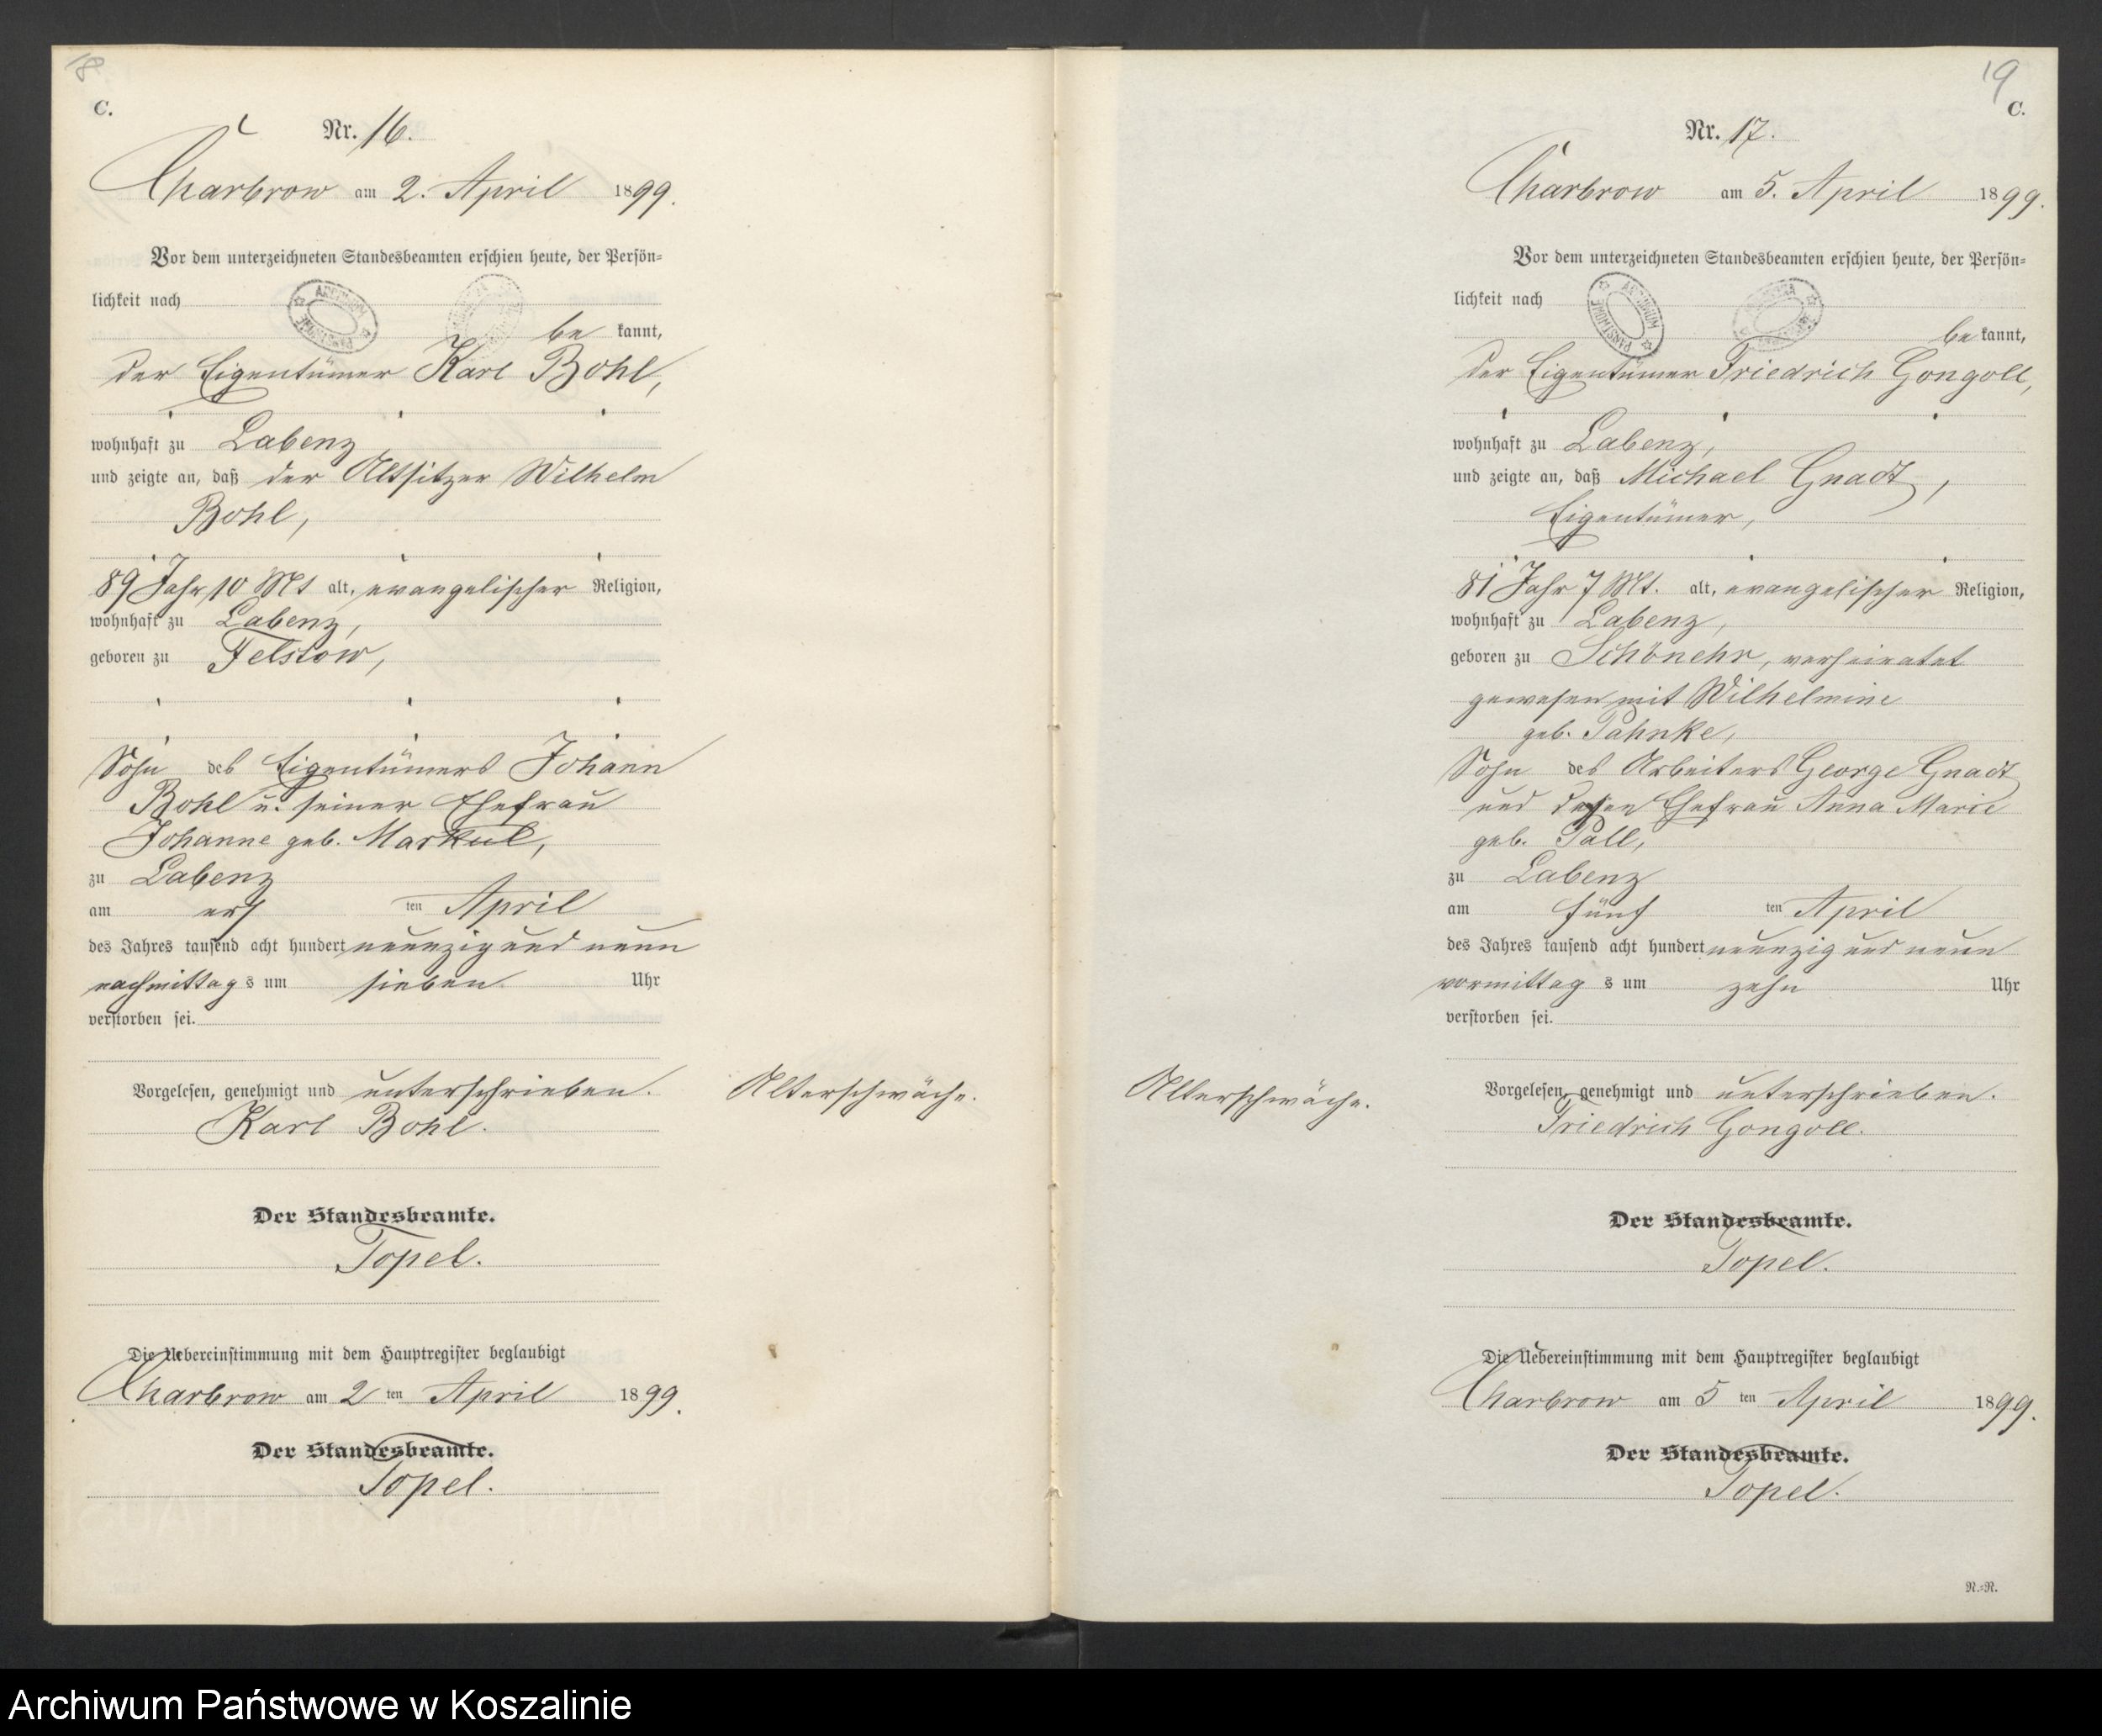 18
C.
Nr. 16.
Charbrow am 2. April 1899.
Vor dem unterzeichneten Standesbeamten erschien heute, der Persön-
lichkeit nach
be kannt,
der Eigentümer Karl Bohl,
wohnhaft zu Labenz
und zeigte an, daß der Altsitzer Wilhelm
Bohl,
89 Jahr 10 Mt alt, evangelischer Religion,
wohnhaft zu Labenz,
geboren zu Felstow,
Sohn des Eigentümers Johann
Bohl u. seiner Ehefrau
Johanne geb. Markul,
zu Labenz
am erst ten April
des Jahres tausend acht hundert neunzig und neun
nachmittag s um sieben Uhr
verstorben sei.
Vorgelesen, genehmigt und unterschrieben.
Karl Bohl.
Alterschwäche.
Der Standesbeamte.
Topel.
Die Uebereinstimmung mit dem Hauptregister beglaubigt
Charbrow am 2 ten April 1899.
Der Standesbeamte.
Topel.
19
C.
Nr. 17.
Charbrow am 5. April 1899.
Vor dem unterzeichneten Standesbeamten erschien heute, der Persön-
lichkeit nach
be kannt,
der Eigentümer Friedrich Gongoll,
wohnhaft zu Labenz,
und zeigte an, daß Michael Gnadt,
Eigentümer,
81 Jahr 7 Mt. alt, evangelischer Religion,
wohnhaft zu Labenz,
geboren zu Schönehr, verheiratet
gewesen mit Wilhelmine
geb. Pahnke,
Sohn des Arbeiters George Gnadt
und dessen Ehefrau Anna Marie
geb. Pall,
zu Labenz
am fünf ten April
des Jahres tausend acht hundert neunzig und neun
vormittag s um zehn Uhr
verstorben sei.
Alterschwäche.
Vorgelesen, genehmigt und unterschrieben.
Friedrich Gongoll.
Der Standesbeamte.
Topel.
Die Uebereinstimmung mit dem Hauptregister beglaubigt
Charbrow am 5 ten April 1899.
Der Standesbeamte.
Topel.
N.=N.
Archiwum Państwowe w Koszalinie